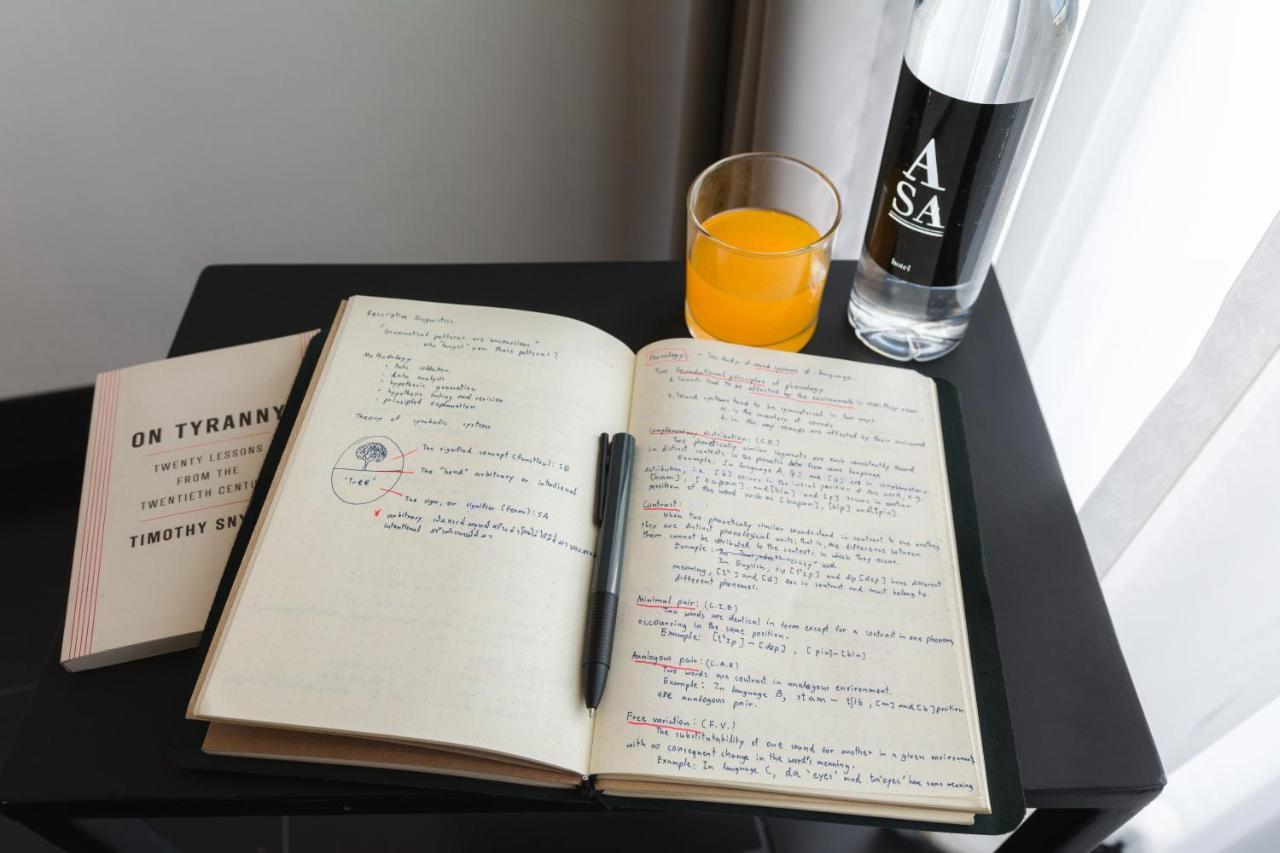 ON TYRANNY
TWENTY LESSONS
FROM THE
TWENTIETH CENTU
TIMOTHY SNY
Descriptive linguistics
"Grammatical patterns are unconscious."
... Who "taught" you these patterns?
Methodology
• Data collection
• data analysis
• hypothesis generation
• hypothesis testing and revision
• principled explanation
Theory of symbolic systems
The signified concept (function): SB
The "bond" arbitrary or intentional
'Tree'
The sign, or signifier (form): SA
arbitrary
intentional
Phonology - The study of sound systems of language.
Two foundational principles of phonology
1. sounds tend to be affected by the environments in which they occur.
2. Sound systems tend to be symmetrical in two ways:
a. in the inventory of sounds
b. in the way sounds are affected by their environment
Complementary distribution: (C.D.)
Two phonetically similar segments are each consistently found
in distinct contexts in the phonetic data from some language.
Example: In language A, and [b] are in complementary
distribution, i.e. [b] occurs in the initial position of the word, e.g.
and [bin] and [p] occurs in another
position of the word such as and [ipin].
Contrast:
When two phonetically similar sounds stand in contrast to one another
they are distinct phonological units; that is, the difference between
them cannot be attributed to the contexts in which they occur.
Example:
In English, tip [tʰɪp] and dip [dɪp] have different
meaning, [tʰ] and [d] are in contrast and must belong to
different phonemes.
Minimal pair: (C.I.E)
Two words are identical in form except for a contrast in one phoneme
occouring in the same position.
Example: [tʰɪp] – [dɪp], [pin] – [bin]
Analogous pair: (C.A.E)
Two words are contrast in analogous environment.
Example: In language B, stam – , [m] and [b] position
are analogous pair.
Free variation: (F.V.)
The substitutability of one sound for another in a given environment
with no consequent change in the word's meaning.
Example: In language C, da 'eyes' and ta 'eyes' have same meaning
A
SA
hotel